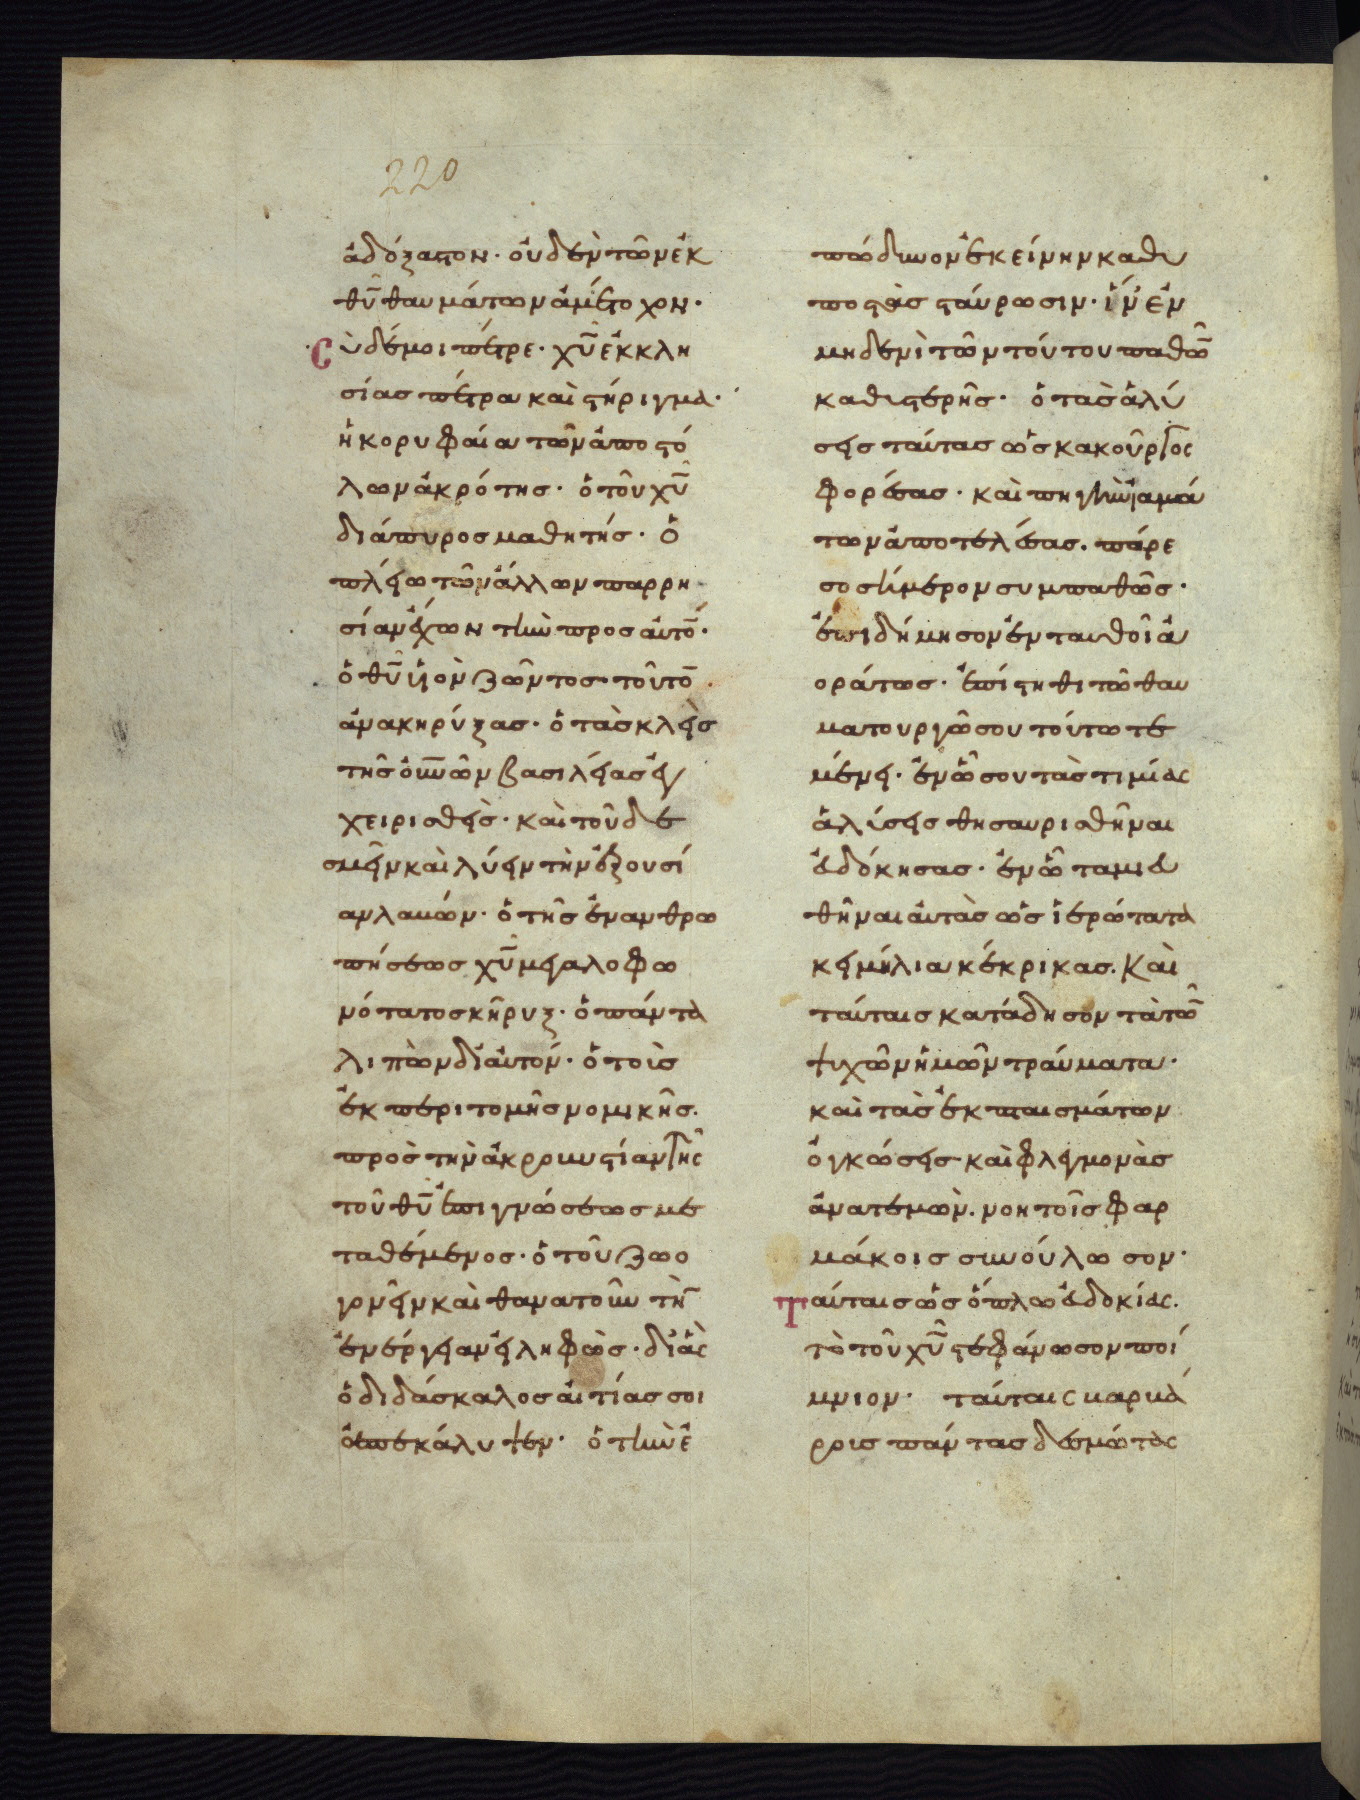 220
ἀδόξαστον· οὐδὲν τῶν ἐκ
θῦ θαυμάτων ἀμέτοχον·
Σὺ δέ μοι πέτρε· χῦ ἐκκλη
σίας πέτρα καὶ στήριγμα·
ἡ κορυφαία τῶν ἀποστό
λων ἀκρότης· ὁ τοῦ χῦ
διάπυρος μαθητής· ὁ
πλέω τῶν ἄλλων παρρη
σίαν ἔχων τὴν προς αὐτὸ·
ὁ θῦ ὑιὸν ζῶντος τοῦτο
ἀνακηρύξας· ὁ τὰς κλεὶς
τῆς οὐνῶν βασιλείας ἐγ
χειρισθεὶς· καὶ τοῦ δε
σμεῖν καὶ λύειν τὴν ἐξουσί
αν λαμών· ὁ τῆς ἐνανθρω
πήσεως χῦ μεγαλοφω
νότατος κήρυξ· ὁ πάντα
λιπὼν δι αὐτόν· ὁ τοὶς
ἐκ περιτομῆς νομικῆς.
πρὸς τὴν ἀκροβυστίαν τῆς
τοῦ θῦ ἐπιγνώσεως με
ταθέμενος· ὁ τοῦ ζωο
γονεῖν καὶ θανατοῦν τὴν
ἐνέργειαν εἰληφὼς· δι ἃς
ὁ διδάσκαλος αἰτίας σοι
ἀπεκάλυψεν· ὁ τὴν ἐ
πώδυνον ἐκείνην καθυ
ποστὰς σταύρωσιν· ἵν' ἐν
μηδενὶ τῶν τούτου παθῶν
καθυστερῆς· ὁ τὰς ἁλύ
σεις ταύτας ὡς κακοῦργος
φορέσας· καὶ πηγὴν ἰαμά
των ἀποτελέσας. πάρε
σο σήμερον συμπαθῶς·
ἐπιδήμησον ἐνταυθοῖ ἀ
οράτως· ἐπίστηθι τῶ θαυ
ματουργῶ σου τούτω τε
μένει· ἐν ὧ σου τὰς τιμίας
ἁλύσεις θησαυρισθῆναι
εὐδόκησας· ἐν ὧ ταμιευ
θῆναι αὐτὰς ὡς ἱερώτατα
κειμήλια κέκρικας. Καὶ
ταύταις κατάδησον τὰ τῶν
ψυχῶν ἡμῶν τραύματα·
καὶ τὰς ἐκ πταισμάτων
ὀγκώσεις καὶ φλεγμονὰς
ἀνατεμὼν. νοητοῖς φαρ
μάκοις συνούλωσον·
Ταύταις ὡς ὅπλω εὐδοκίας.
τὸ τοῦ χῦ στεφάνωσον ποί
μνιον· ταύταις μαρμά
ροις πάντας δεσμώτας